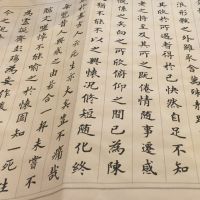 外雖取舍萬殊靜躁
欣於所遇暫得於己快然自足不知
老之將至及其所之既倦情隨事遷感
係之矣向之所欣俯仰之間已為陳
猶不能不以之興懷況修短隨化終
云死生亦大矣豈不痛哉
每覽昔人興感之由若合一契未嘗不
臨文嗟悼不能喻之於懷固知一死生
為虛誕齊彭殤為妄作後
今之視